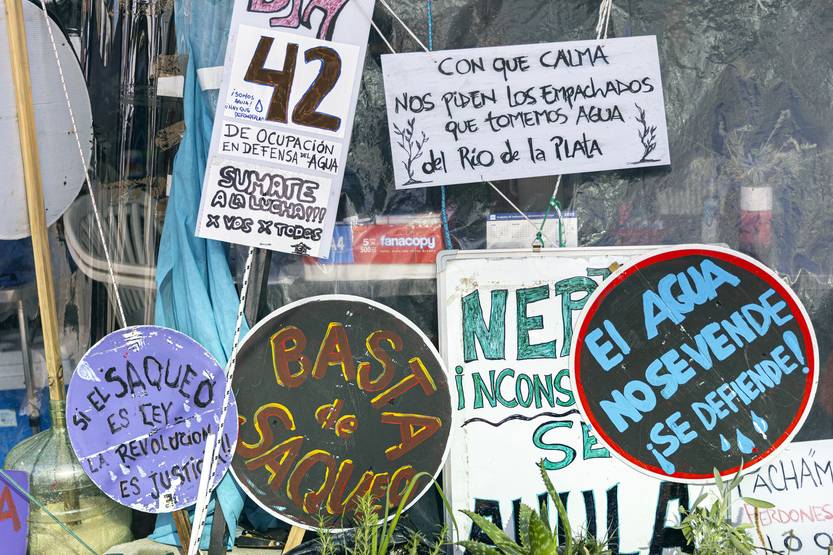 DÍA
42
¡SOMOS
AGUA!
DE OCUPACIÓN
EN DEFENSA DEL AGUA
SUMATE
A LA LUCHA!!!
X VOS X TODOS
CON QUE CALMA
NOS PIDEN LOS EMPACHADOS
QUE TOMEMOS AGUA
del Río de la PLATA
A4
5
500
fanacopy
SI EL SAQUEO
ES LEY
LA REVOLUCION
ES JUSTICIA!!
BASTA
de
SAQUEO
NEP
¡INCONS
SE
ANULA
El AGUA
NO SE VENDE
¡SE DEFIENDE!